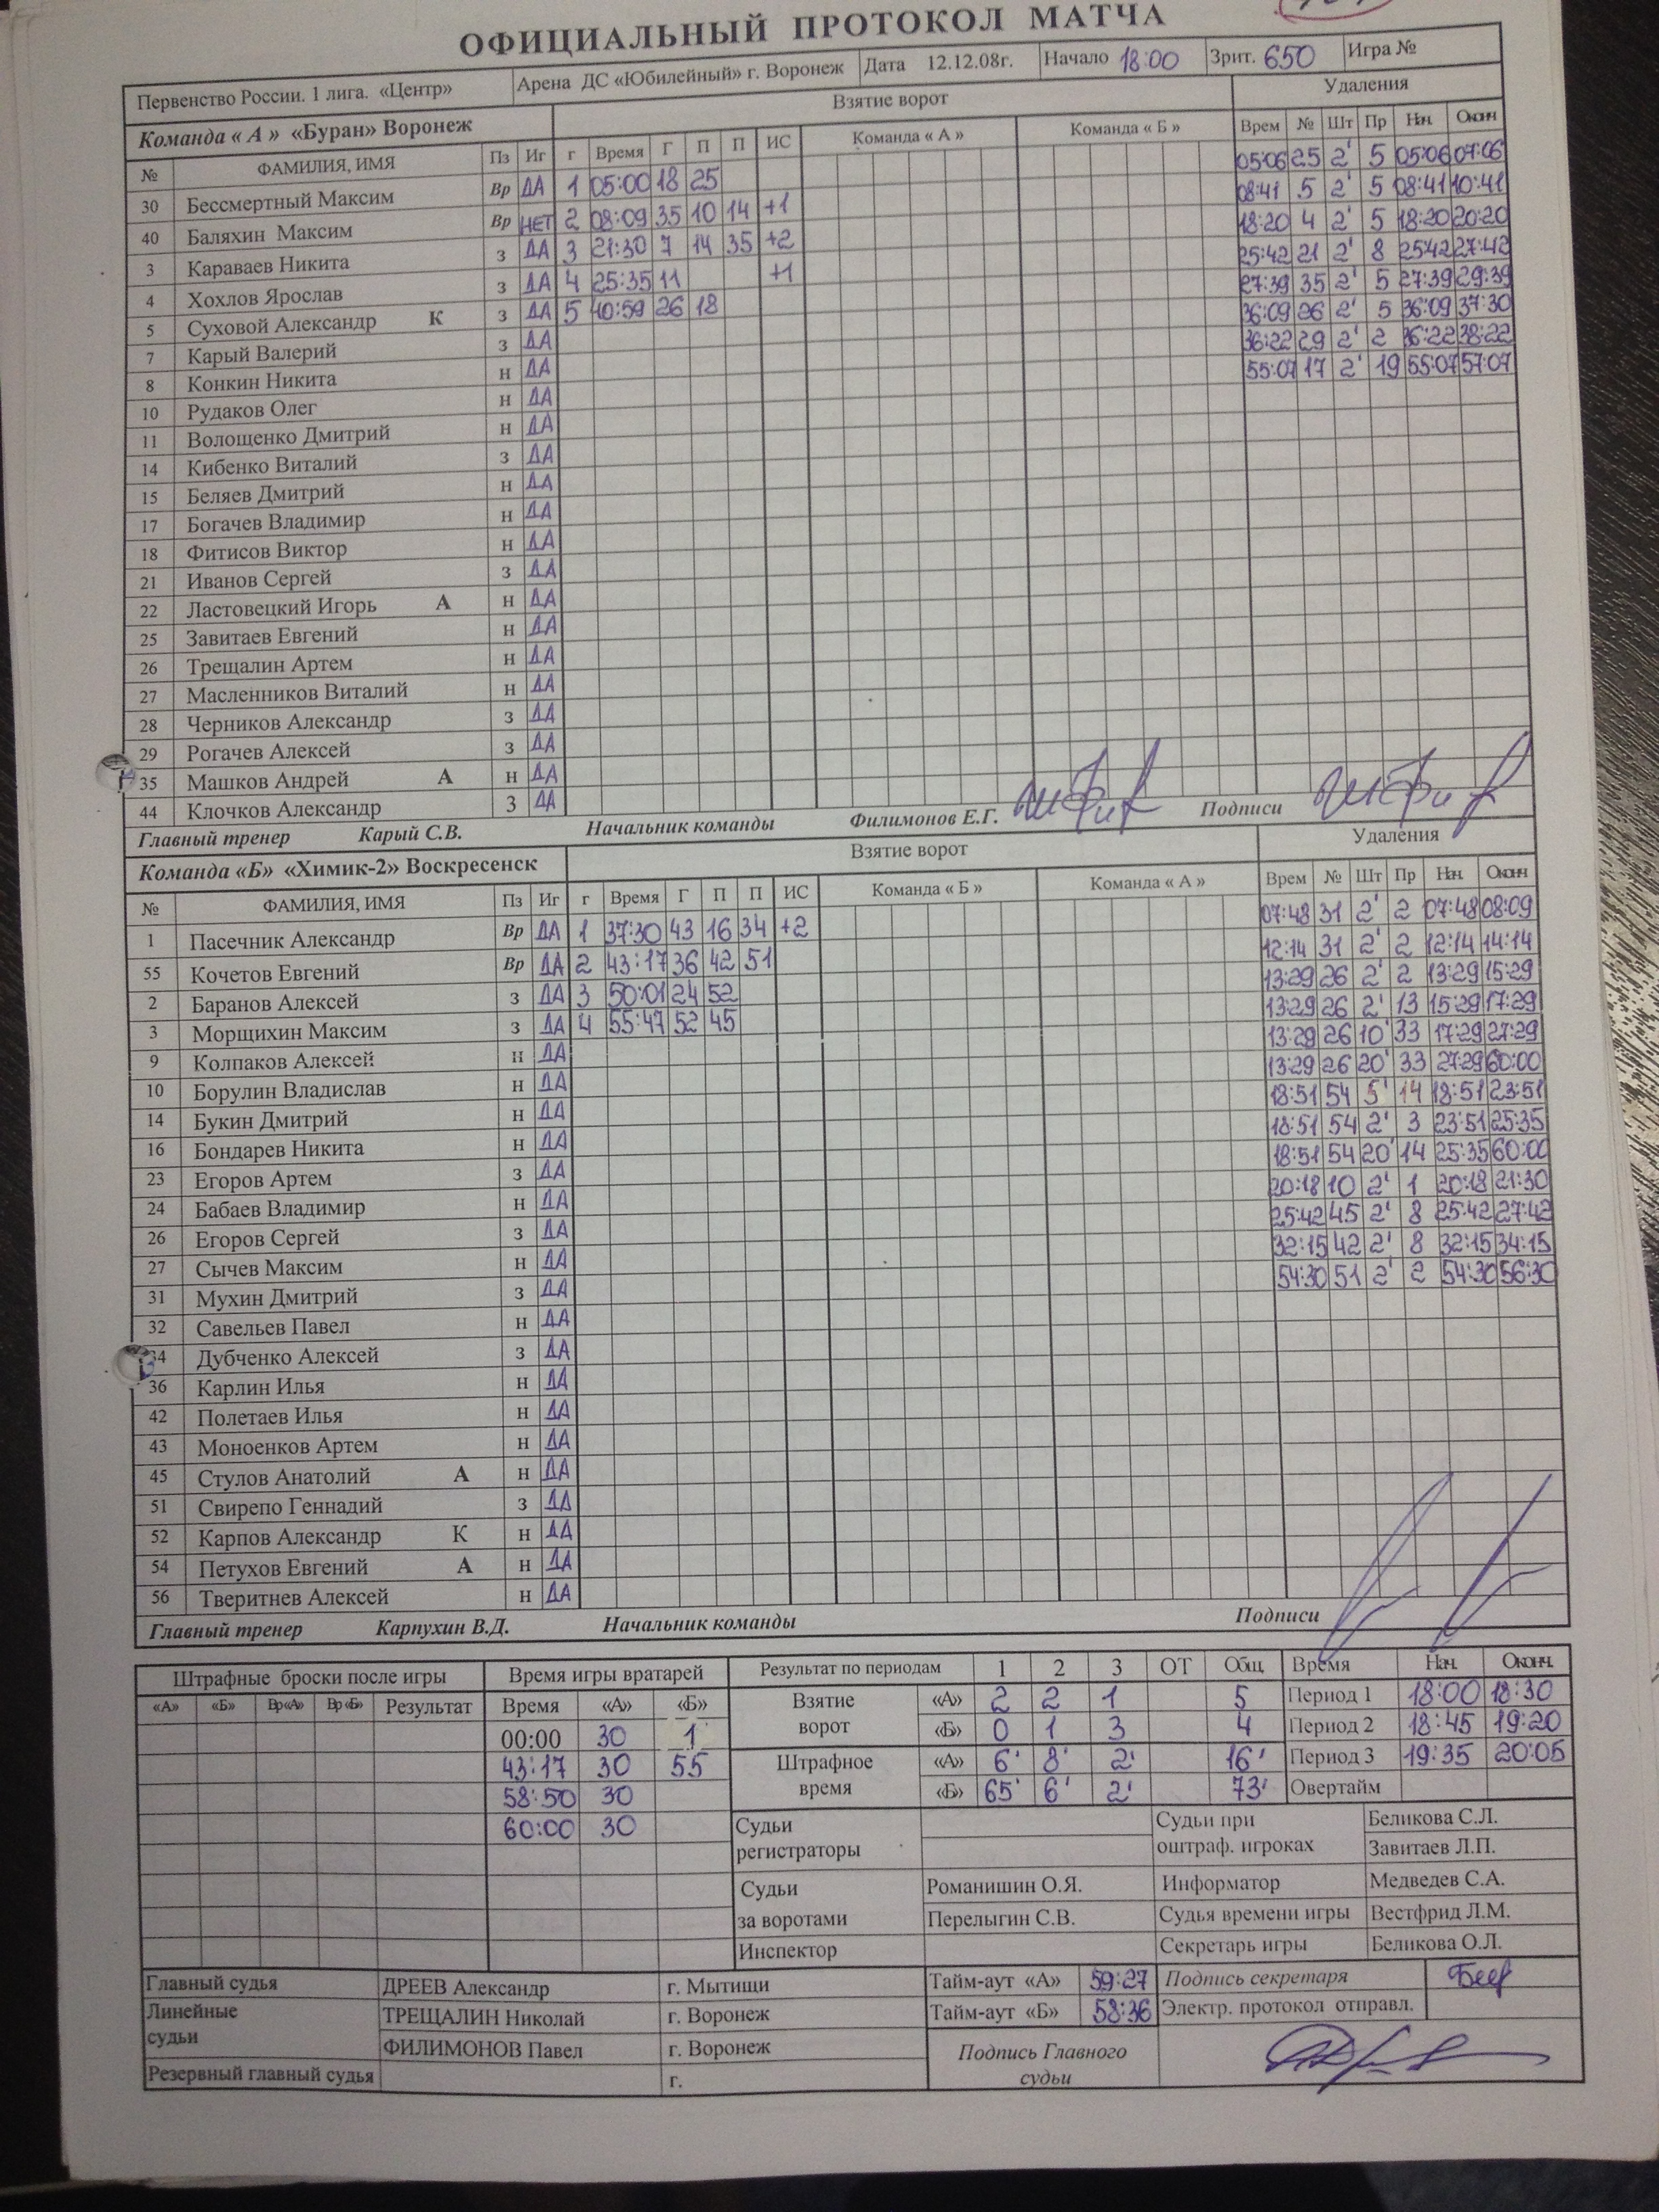 ОФИЦИАЛЬНЫЙ ПРОТОКОЛ МАТЧА
Первенство России. 1 лига. «Центр» Арена ДС «Юбилейный» г. Воронеж Дата 12.12.08г. Начало 18:00 Зрит. 650 Игра №
Команда « А » «Буран» Воронеж Взятие ворот Удаления
№ ФАМИЛИЯ, ИМЯ Пз Иг г Время Г П П ИС Команда « А » Команда « Б » Врем № Шт Пр Нач. Оконч
30 Бессмертный Максим Вр ДА 1 05:00 18 25 05:06 25 2' 5 05:06 07:06
40 Баляхин Максим Вр НЕТ 2 08:09 35 10 14 +1 08:41 5 2' 5 08:41 10:41
3 Караваев Никита з ДА 3 21:30 7 14 35 +2 18:20 4 2' 5 18:20 20:20
4 Хохлов Ярослав з ДА 4 25:35 11 +1 25:42 21 2' 8 25:42 27:42
5 Суховой Александр К з ДА 5 40:59 26 18 27:39 35 2' 5 27:39 29:39
7 Карый Валерий з ДА 36:09 26 2' 5 36:09 37:30
8 Конкин Никита н ДА 36:22 29 2' 2 36:22 38:22
10 Рудаков Олег н ДА 55:07 17 2' 19 55:07 57:07
11 Волощенко Дмитрий н ДА
14 Кибенко Виталий з ДА
15 Беляев Дмитрий н ДА
17 Богачев Владимир н ДА
18 Фитисов Виктор н ДА
21 Иванов Сергей з ДА
22 Ластовецкий Игорь А н ДА
25 Завитаев Евгений н ДА
26 Трещалин Артем н ДА
27 Масленников Виталий н ДА
28 Черников Александр з ДА
29 Рогачев Алексей з ДА
35 Машков Андрей А н ДА
44 Клочков Александр З ДА
Главный тренер Карый С.В. Начальник команды Филимонов Е.Г. Подписи
Команда «Б» «Химик-2» Воскресенск Взятие ворот Удаления
№ ФАМИЛИЯ, ИМЯ Пз Иг г Время Г П П ИС Команда « Б » Команда « А » Врем № Шт Пр Нач. Оконч
1 Пасечник Александр Вр ДА 1 37:30 43 16 34 +2 07:48 31 2' 2 07:48 08:09
55 Кочетов Евгений Вр ДА 2 43:17 36 42 51 12:14 31 2' 2 12:14 14:14
2 Баранов Алексей з ДА 3 50:01 24 52 13:29 26 2' 2 13:29 15:29
3 Морщихин Максим з ДА 4 55:47 52 45 13:29 26 2' 13 15:29 17:29
9 Колпаков Алексей н ДА 13:29 26 10' 33 17:29 27:29
10 Борулин Владислав н ДА 13:29 26 20' 33 27:29 60:00
14 Букин Дмитрий н ДА 18:51 54 5' 14 18:51 23:51
16 Бондарев Никита н ДА 18:51 54 2' 3 23:51 25:35
23 Егоров Артем з ДА 18:51 54 20' 14 25:35 60:00
24 Бабаев Владимир н ДА 20:18 10 2' 1 20:18 21:30
26 Егоров Сергей з ДА 25:42 45 2' 8 25:42 27:42
27 Сычев Максим н ДА 32:15 42 2' 8 32:15 34:15
31 Мухин Дмитрий з ДА 54:30 51 2' 2 54:30 56:30
32 Савельев Павел н ДА
34 Дубченко Алексей з ДА
36 Карлин Илья н ДА
42 Полетаев Илья н ДА
43 Моноенков Артем н ДА
45 Стулов Анатолий А н ДА
51 Свирепо Геннадий з ДА
52 Карпов Александр К н ДА
54 Петухов Евгений А н ДА
56 Тверитнев Алексей н ДА
Главный тренер Карпухин В.Д. Начальник команды Подписи
Штрафные броски после игры Время игры вратарей Результат по периодам 1 2 3 ОТ Общ. Время Нач. Оконч.
«А» «Б» Вр«А» Вр «Б» Результат Время «А» «Б» Взятие ворот «А» 2 2 1 5 Период 1 18:00 18:30
00:00 30 1 «Б» 0 1 3 4 Период 2 18:45 19:20
43:17 30 55 Штрафное время «А» 6' 8' 2' 16' Период 3 19:35 20:05
58:50 30 «Б» 65' 6' 2' 73' Овертайм
60:00 30 Судьи регистраторы Судьи при оштраф. игроках Беликова С.Л.
Завитаев Л.П.
Судьи за воротами Романишин О.Я. Информатор Медведев С.А.
Перелыгин С.В. Судья времени игры Вестфрид Л.М.
Инспектор Секретарь игры Беликова О.Л.
Главный судья ДРЕЕВ Александр г. Мытищи Тайм-аут «А» 59:27 Подпись секретаря
Линейные судьи ТРЕЩАЛИН Николай г. Воронеж Тайм-аут «Б» 58:36 Электр. протокол отправл.
ФИЛИМОНОВ Павел г. Воронеж Подпись Главного судьи
Резервный главный судья г.